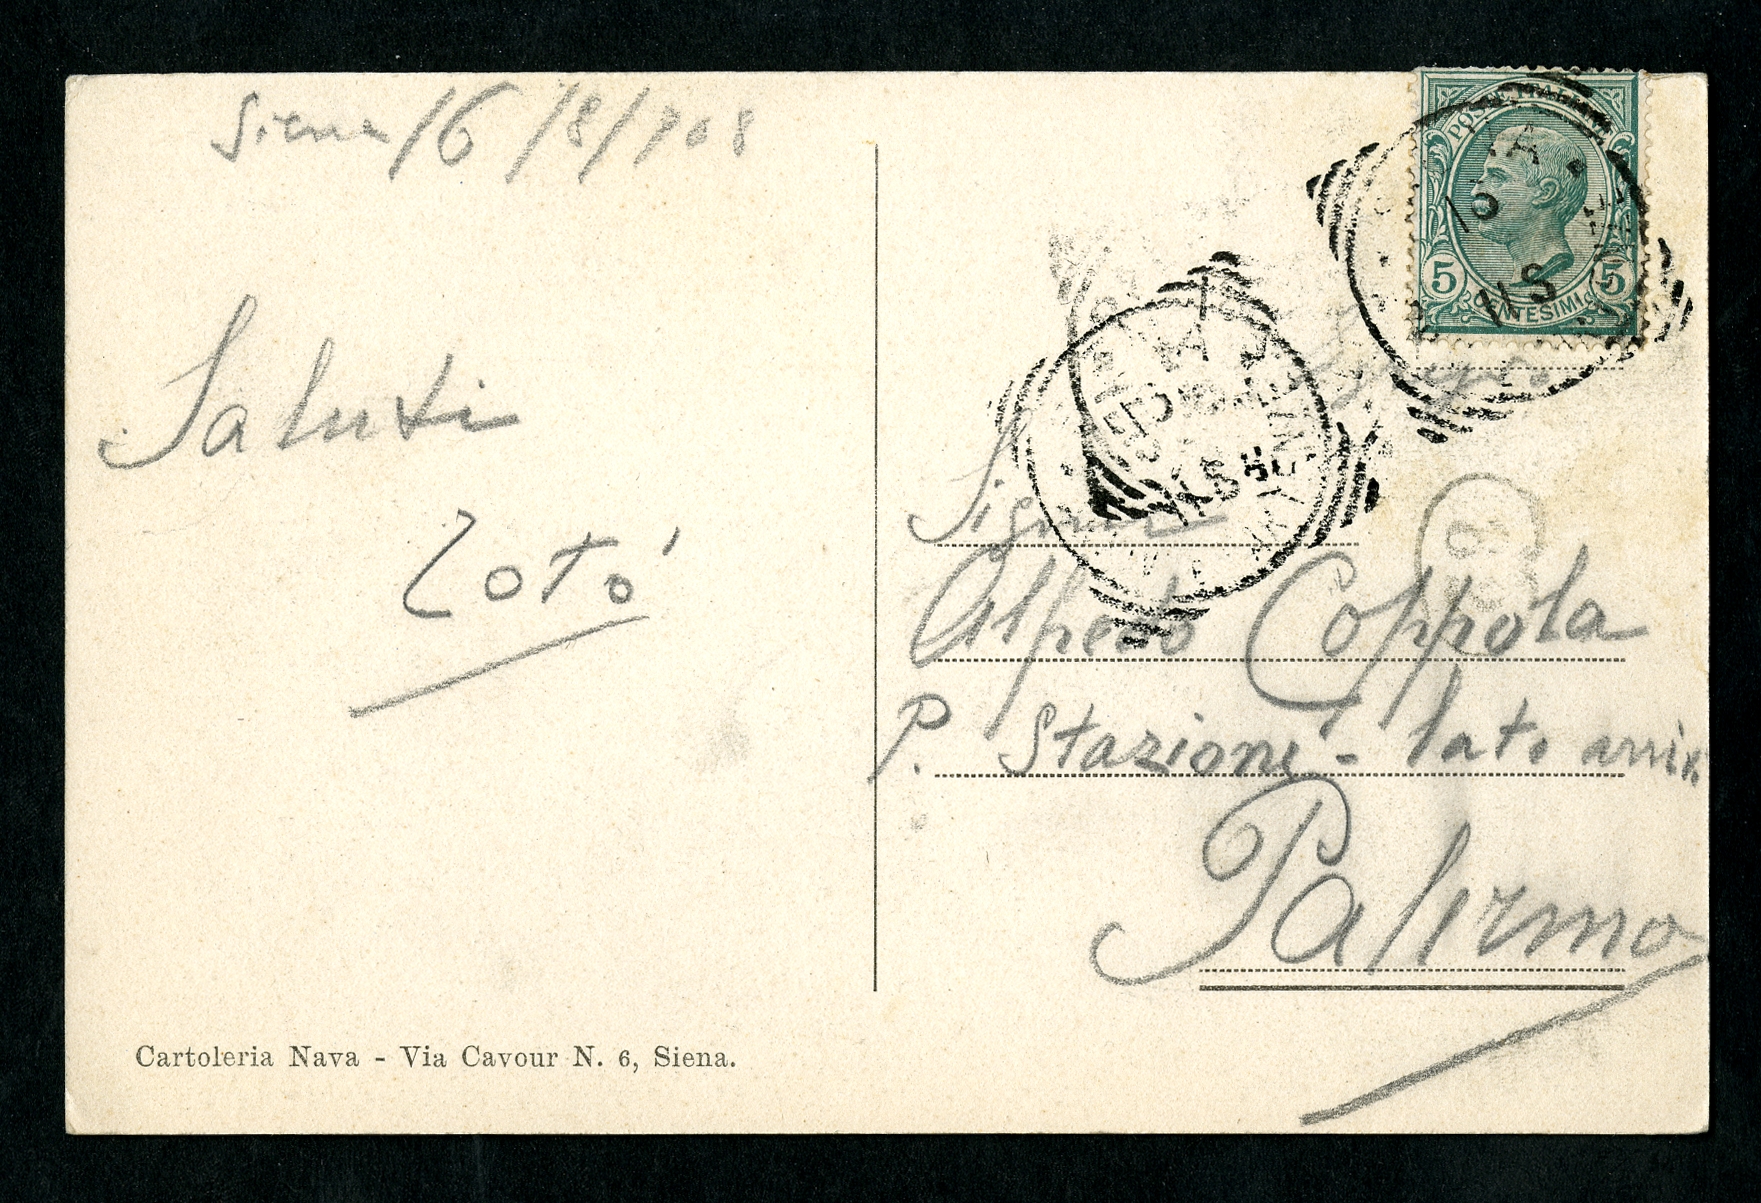 Siena/6/8/908
Saluti
Totò
Cartoleria Nava - Via Cavour N. 6, Siena.
POSTE ITALIANE
5 5
CENTESIMI
Signor
Alfredo Coppola
P. Stazione - lato arriv
Palermo